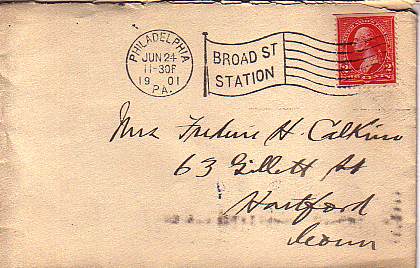 PHILADELPHIA
JUN 24
11-30P
19 01
PA.
BROAD ST
STATION
2 2
Mrs Frederic H. Calkins
63 Gillett St
Hartford
Conn